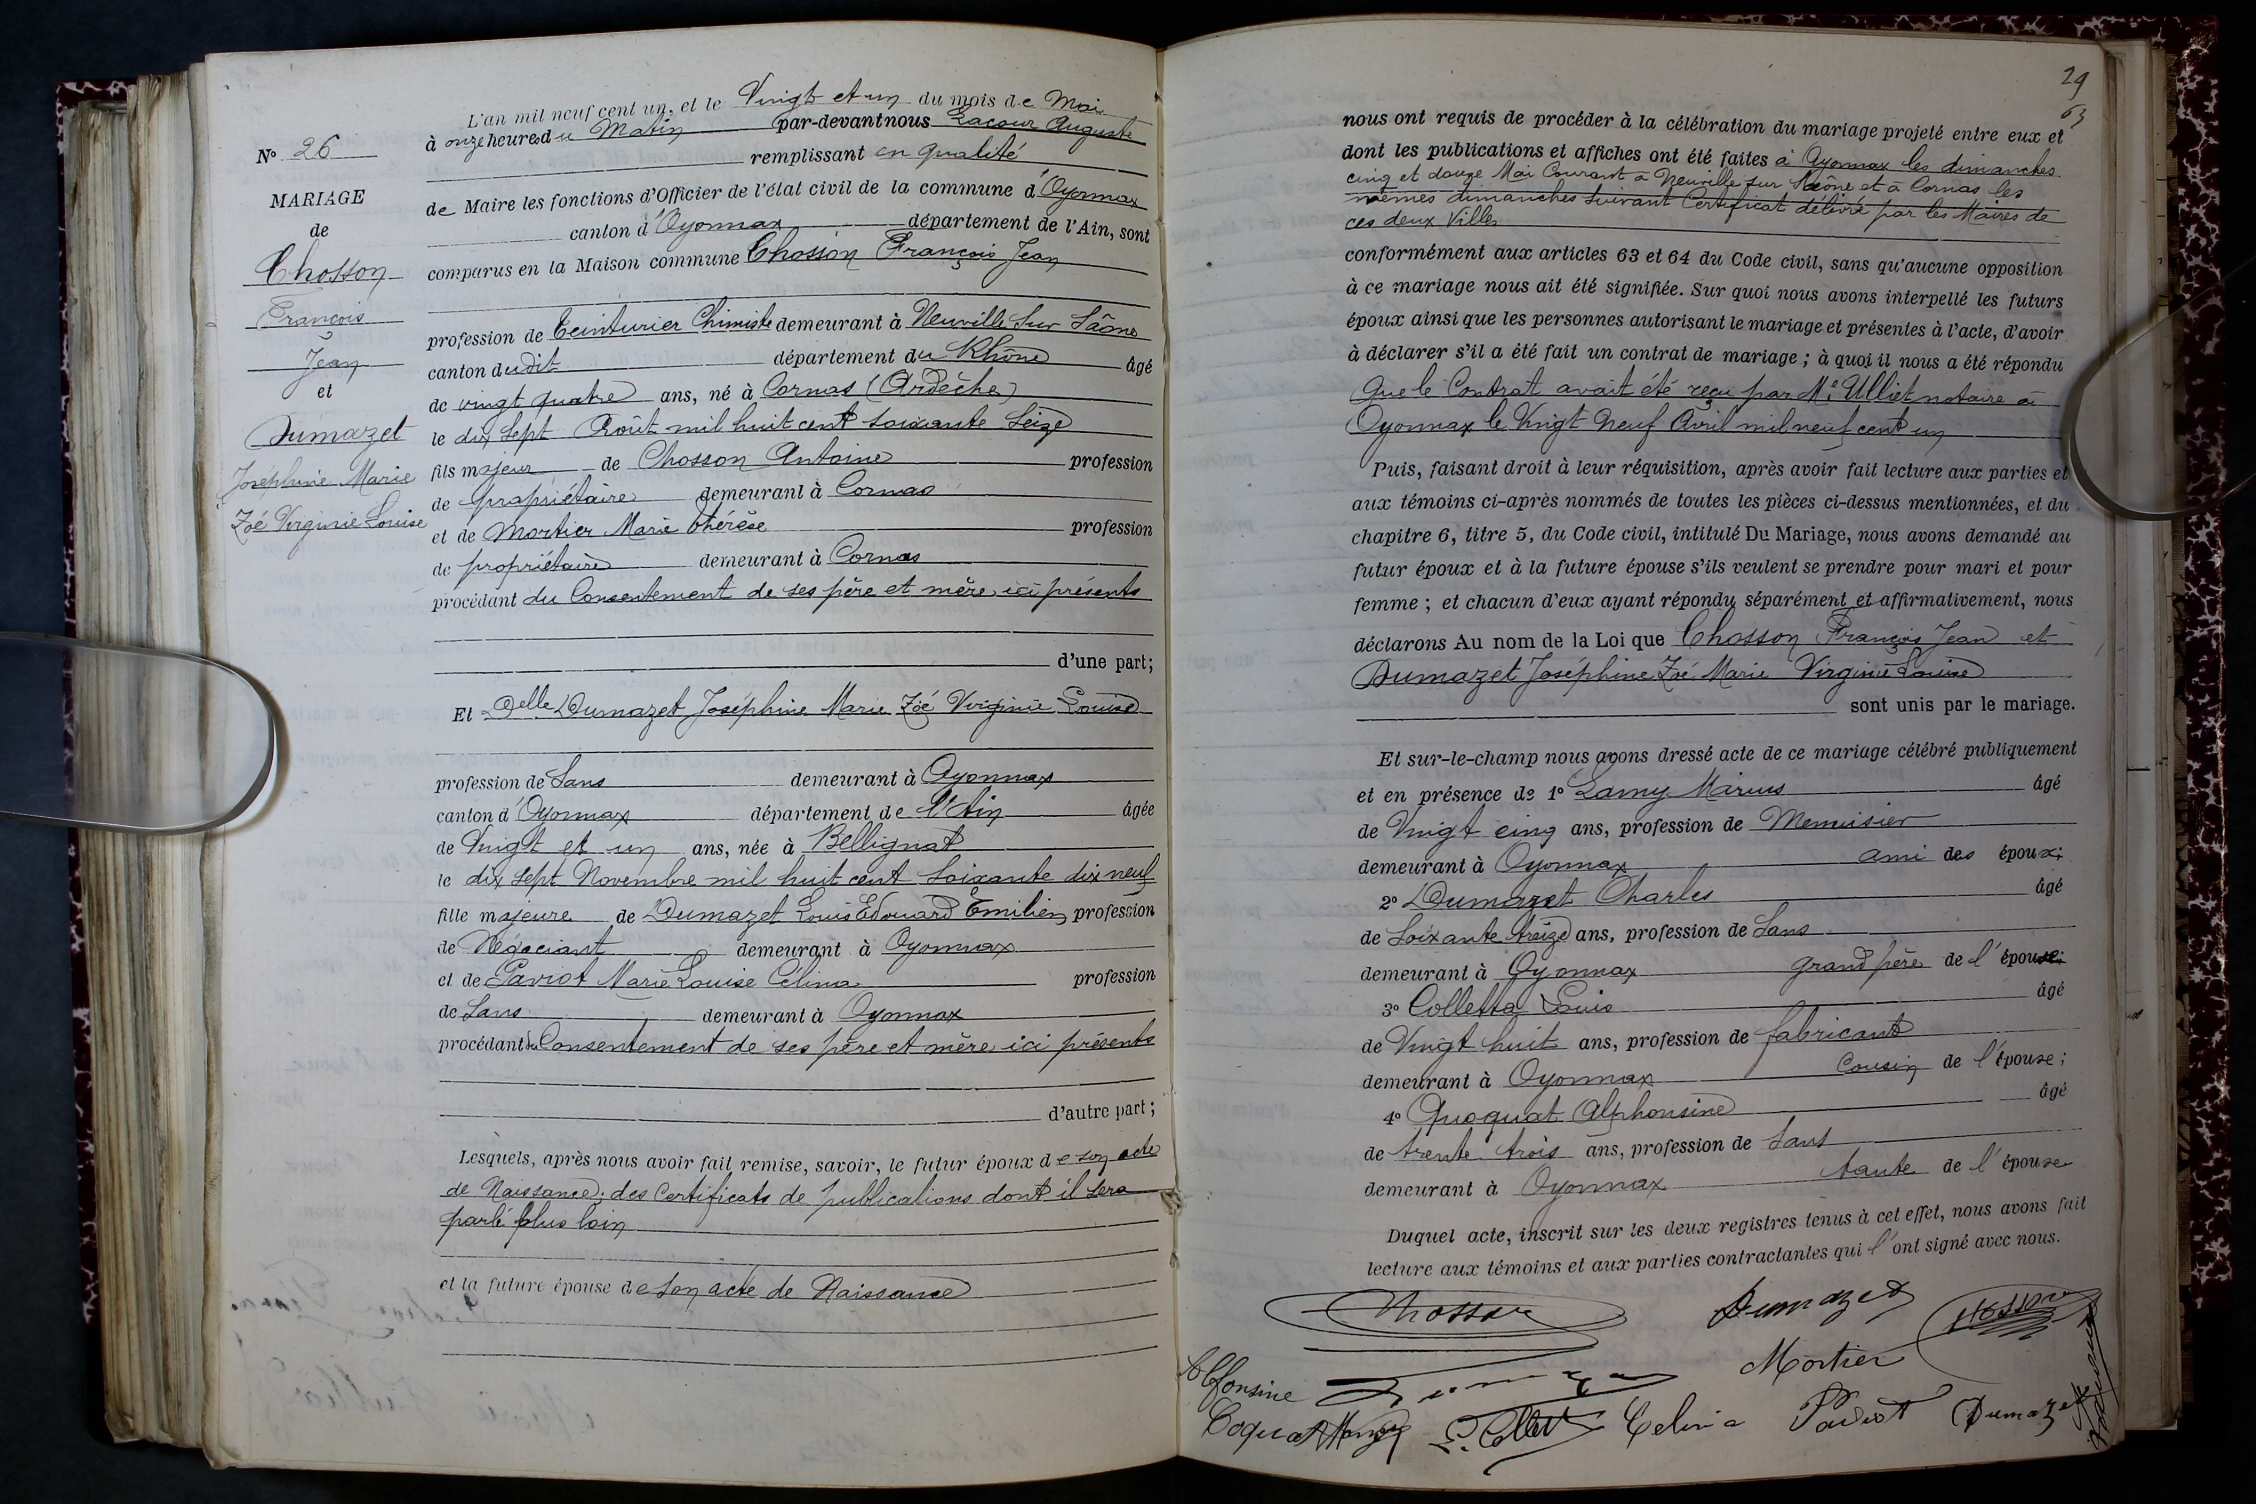 N° 26
MARIAGE
de
Chosson
François
Jean
et
Dumazet
Joséphine Marie
Zoé Virginie Louise
L'an mil neuf cent un, et le Vingt et un du mois de Mai
à onze heures du Matin par-devant nous Lacour Auguste
remplissant en qualité
de Maire les fonctions d'Officier de l'état civil de la commune d'Oyonnax
canton d'Oyonnax département de l'Ain, sont
comparus en la Maison commune Chosson François Jean
profession de Teinturier Chimiste demeurant à Neuville Sur Saône
canton dudit département du Rhône âgé
de vingt quatre ans, né à Cornas (Ardèche)
le dix sept Août mil huit cent soixante Seize
fils majeur de Chosson Antoine profession
de propriétaire demeurant à Cornas
et de Mortier Marie Thérèse profession
de propriétaire demeurant à Cornas
procédant du Consentement de ses père et mère, ici présents
d'une part;
Et Delle Dumazet Joséphine Marie Zoé Virginie Louise
profession de Sans demeurant à Oyonnax
canton d'Oyonnax département de l'Ain âgée
de Vingt et un ans, née à Bellignat
le dix Sept Novembre mil huit cent Soixante dix neuf
fille majeure de Dumazet Louis Edouard Emilien profession
de Négociant demeurant à Oyonnax
et de Paviot Marie Louise Célina profession
de Sans demeurant à Oyonnax
procédant du Consentement de ses père et mère ici présents
d'autre part;
Lesquels, après nous avoir fait remise, savoir, le futur époux de son acte
de Naissance; des Certificats de publications dont il sera
parlé plus loin
et la future épouse de son acte de Naissance
29
63
nous ont requis de procéder à la célébration du mariage projeté entre eux et
dont les publications et affiches ont été faites à Oyonnax les dimanches
cinq et douze Mai Courant à Neuville sur Saône et à Cornas les
mêmes dimanches suivant Certificat délivré par les Maires de
ces deux Villes
conformément aux articles 63 et 64 du Code civil, sans qu'aucune opposition
à ce mariage nous ait été signifiée. Sur quoi nous avons interpellé les futurs
époux ainsi que les personnes autorisant le mariage et présentes à l'acte, d'avoir
à déclarer s'il a été fait un contrat de mariage; à quoi il nous a été répondu
Que le Contrat avait été reçu par Me Ulliet notaire à
Oyonnax le Vingt Neuf Avril mil neuf cent un
Puis, faisant droit à leur réquisition, après avoir fait lecture aux parties et
aux témoins ci-après nommés de toutes les pièces ci-dessus mentionnées, et du
chapitre 6, titre 5, du Code civil, intitulé Du Mariage, nous avons demandé au
futur époux et à la future épouse s'ils veulent se prendre pour mari et pour
femme; et chacun d'eux ayant répondu séparément et affirmativement, nous
déclarons Au nom de la Loi que Chosson François Jean et
Dumazet Joséphine Zoé Marie Virginie Louise
sont unis par le mariage.
Et sur-le-champ nous avons dressé acte de ce mariage célébré publiquement
et en présence de 1° Lamy Marius âgé
de Vingt cinq ans, profession de Menuisier
demeurant à Oyonnax ami des époux;
2° Dumazet Charles âgé
de Soixante treize ans, profession de Sans
demeurant à Oyonnax grand père de l'épouse;
3° Colletta Louis âgé
de Vingt huit ans, profession de fabricant
demeurant à Oyonnax Cousin de l'épouse;
4° Quoquat Alphonsine âgé
de trente trois ans, profession de Sans
demeurant à Oyonnax tante de l'épouse
Duquel acte, inscrit sur les deux registres tenus à cet effet, nous avons fait
lecture aux témoins et aux parties contractantes qui l'ont signé avec nous.
Chosson Dumazet Chosson
Alfonsine Mortier
Coquat L. Collet Celina Paviot Dumazet